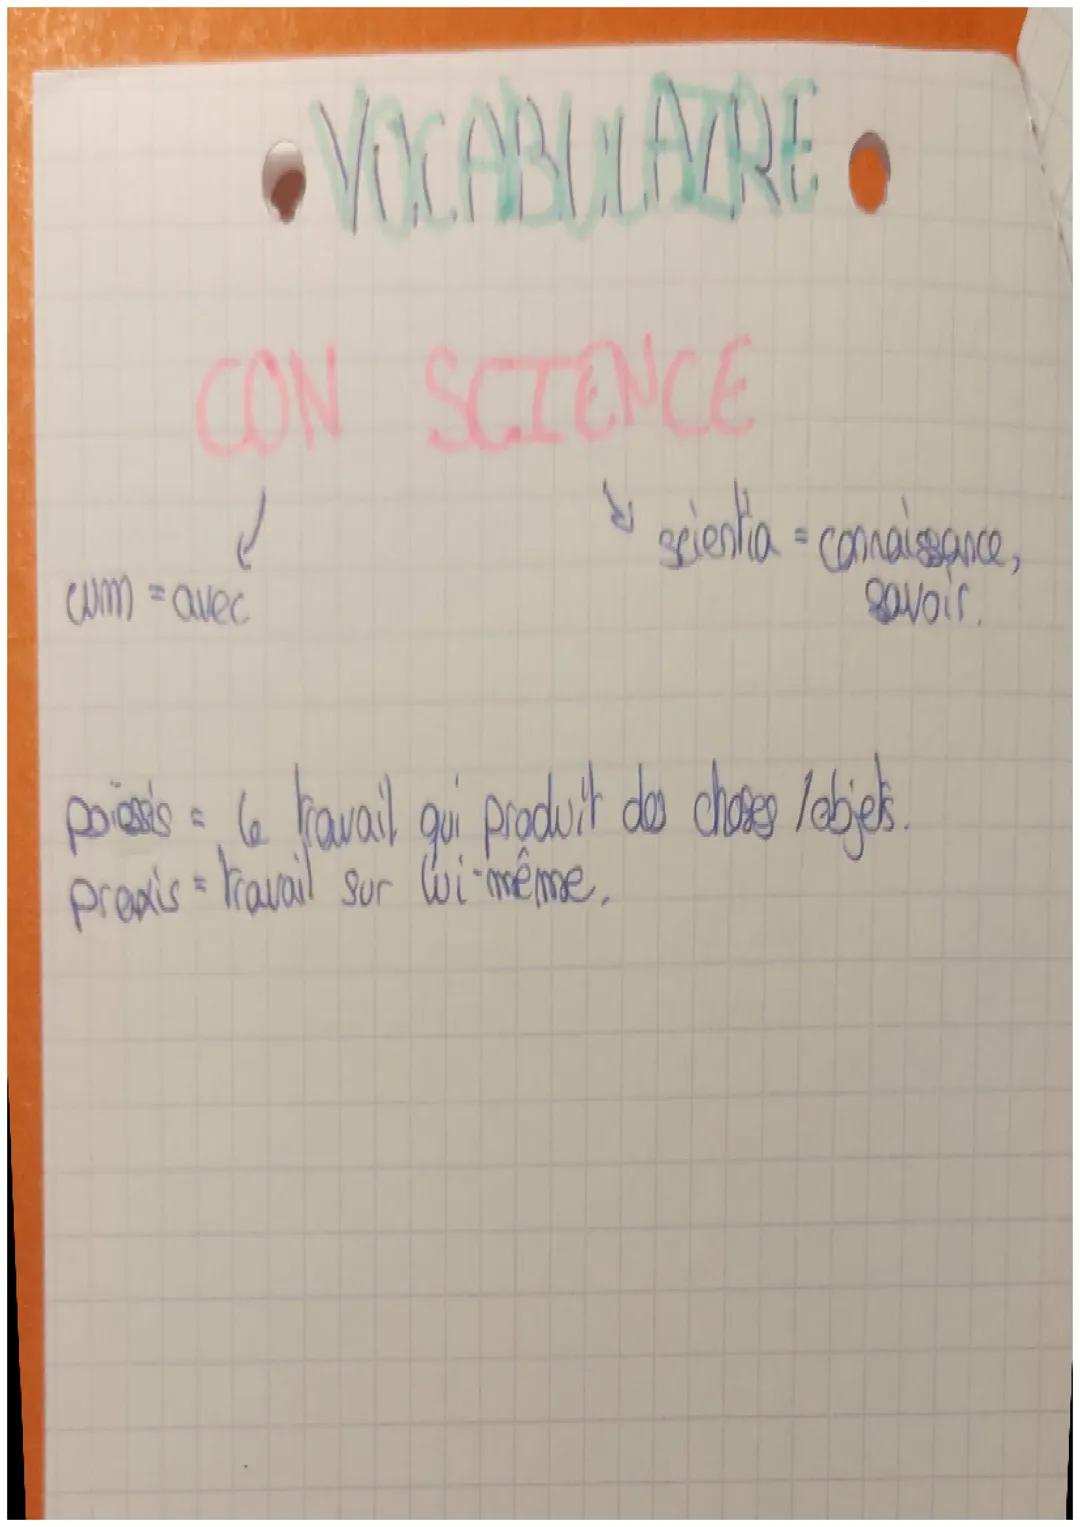 VOCABULAIRE
CON SCIENCE
cum = avec
scientia = connaissance,
savoir.
poïesis = le travail qui produit des choses / objets.
praxis = travail sur lui-même.